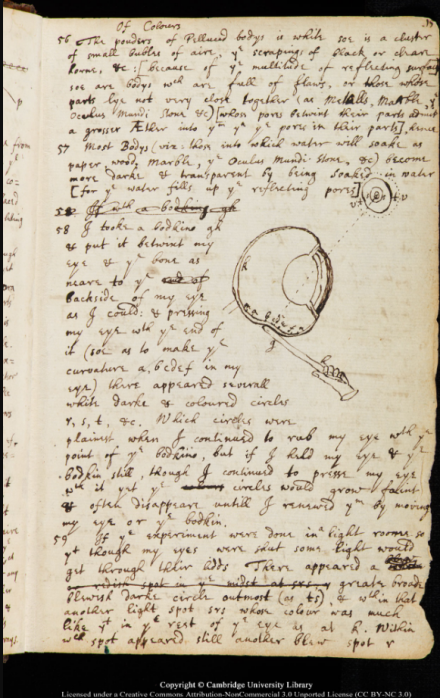 Of Colours
56 The pouders of Pellucid bodys is white soe is a cluster
of small bubles of aire, yᵉ scrapings of black or cleare
horne, &c: [because of yᵉ multitude of reflecting surfaces]
soe are bodys wᶜʰ are full of flaws, or those whose
parts lye not very close together (as Mettalls, Marble, yᵉ
Oculus Mundi Stone &c) [whose pores betwixt their parts admit
a grosser Æther into yᵐ yⁿ yᵉ pores in their parts], hence
57 Most Bodys (viz: those into which water will soake as
paper, wood, marble, yᵉ Oculus Mundi Stone, &c) become
more darke & transparent by being soaked in water
[for yᵉ water fills up yᵉ reflecting pores]
58 a bodking gh
58 I tooke a bodkine gh
& put it betwixt my
eye & yᵉ bone as
neare to yᵉ end of
backside of my eye
as I could: & pressing
my eye wᵗʰ yᵉ end of
it (soe as to make yᵉ
curvature a, bcdef in my
eye) there appeared severall
white darke & coloured circles
r, s, t, &c. Which circles were
plainest when I continued to rub my eye wᵗʰ yᵉ
point of yᵉ bodkine, but if I held my eye & yᵉ
bodkin still, though I continued to presse my eye
wᵗʰ it yet yᵉ circles would grow faint
& often disappeare untill I renewed yᵐ by moving
my eye or yᵉ bodkin.
59 If yᵉ experiment were done in a light roome so
yᵗ though my eyes were shut some light would
get through their lidds There appeared a
redish spot in yᵉ midst at srs, y greate broade
blewish darke circle outmost (as ts), & wᵗʰin that
another light spot srs whose colour was much
like yᵗ in yᵉ rest of yᵉ eye as at k. Within
wᶜʰ spot appeared still another blew spot r
Copyright © Cambridge University Library
Licensed under a Creative Commons Attribution-NonCommercial 3.0 Unported License (CC BY-NC 3.0)